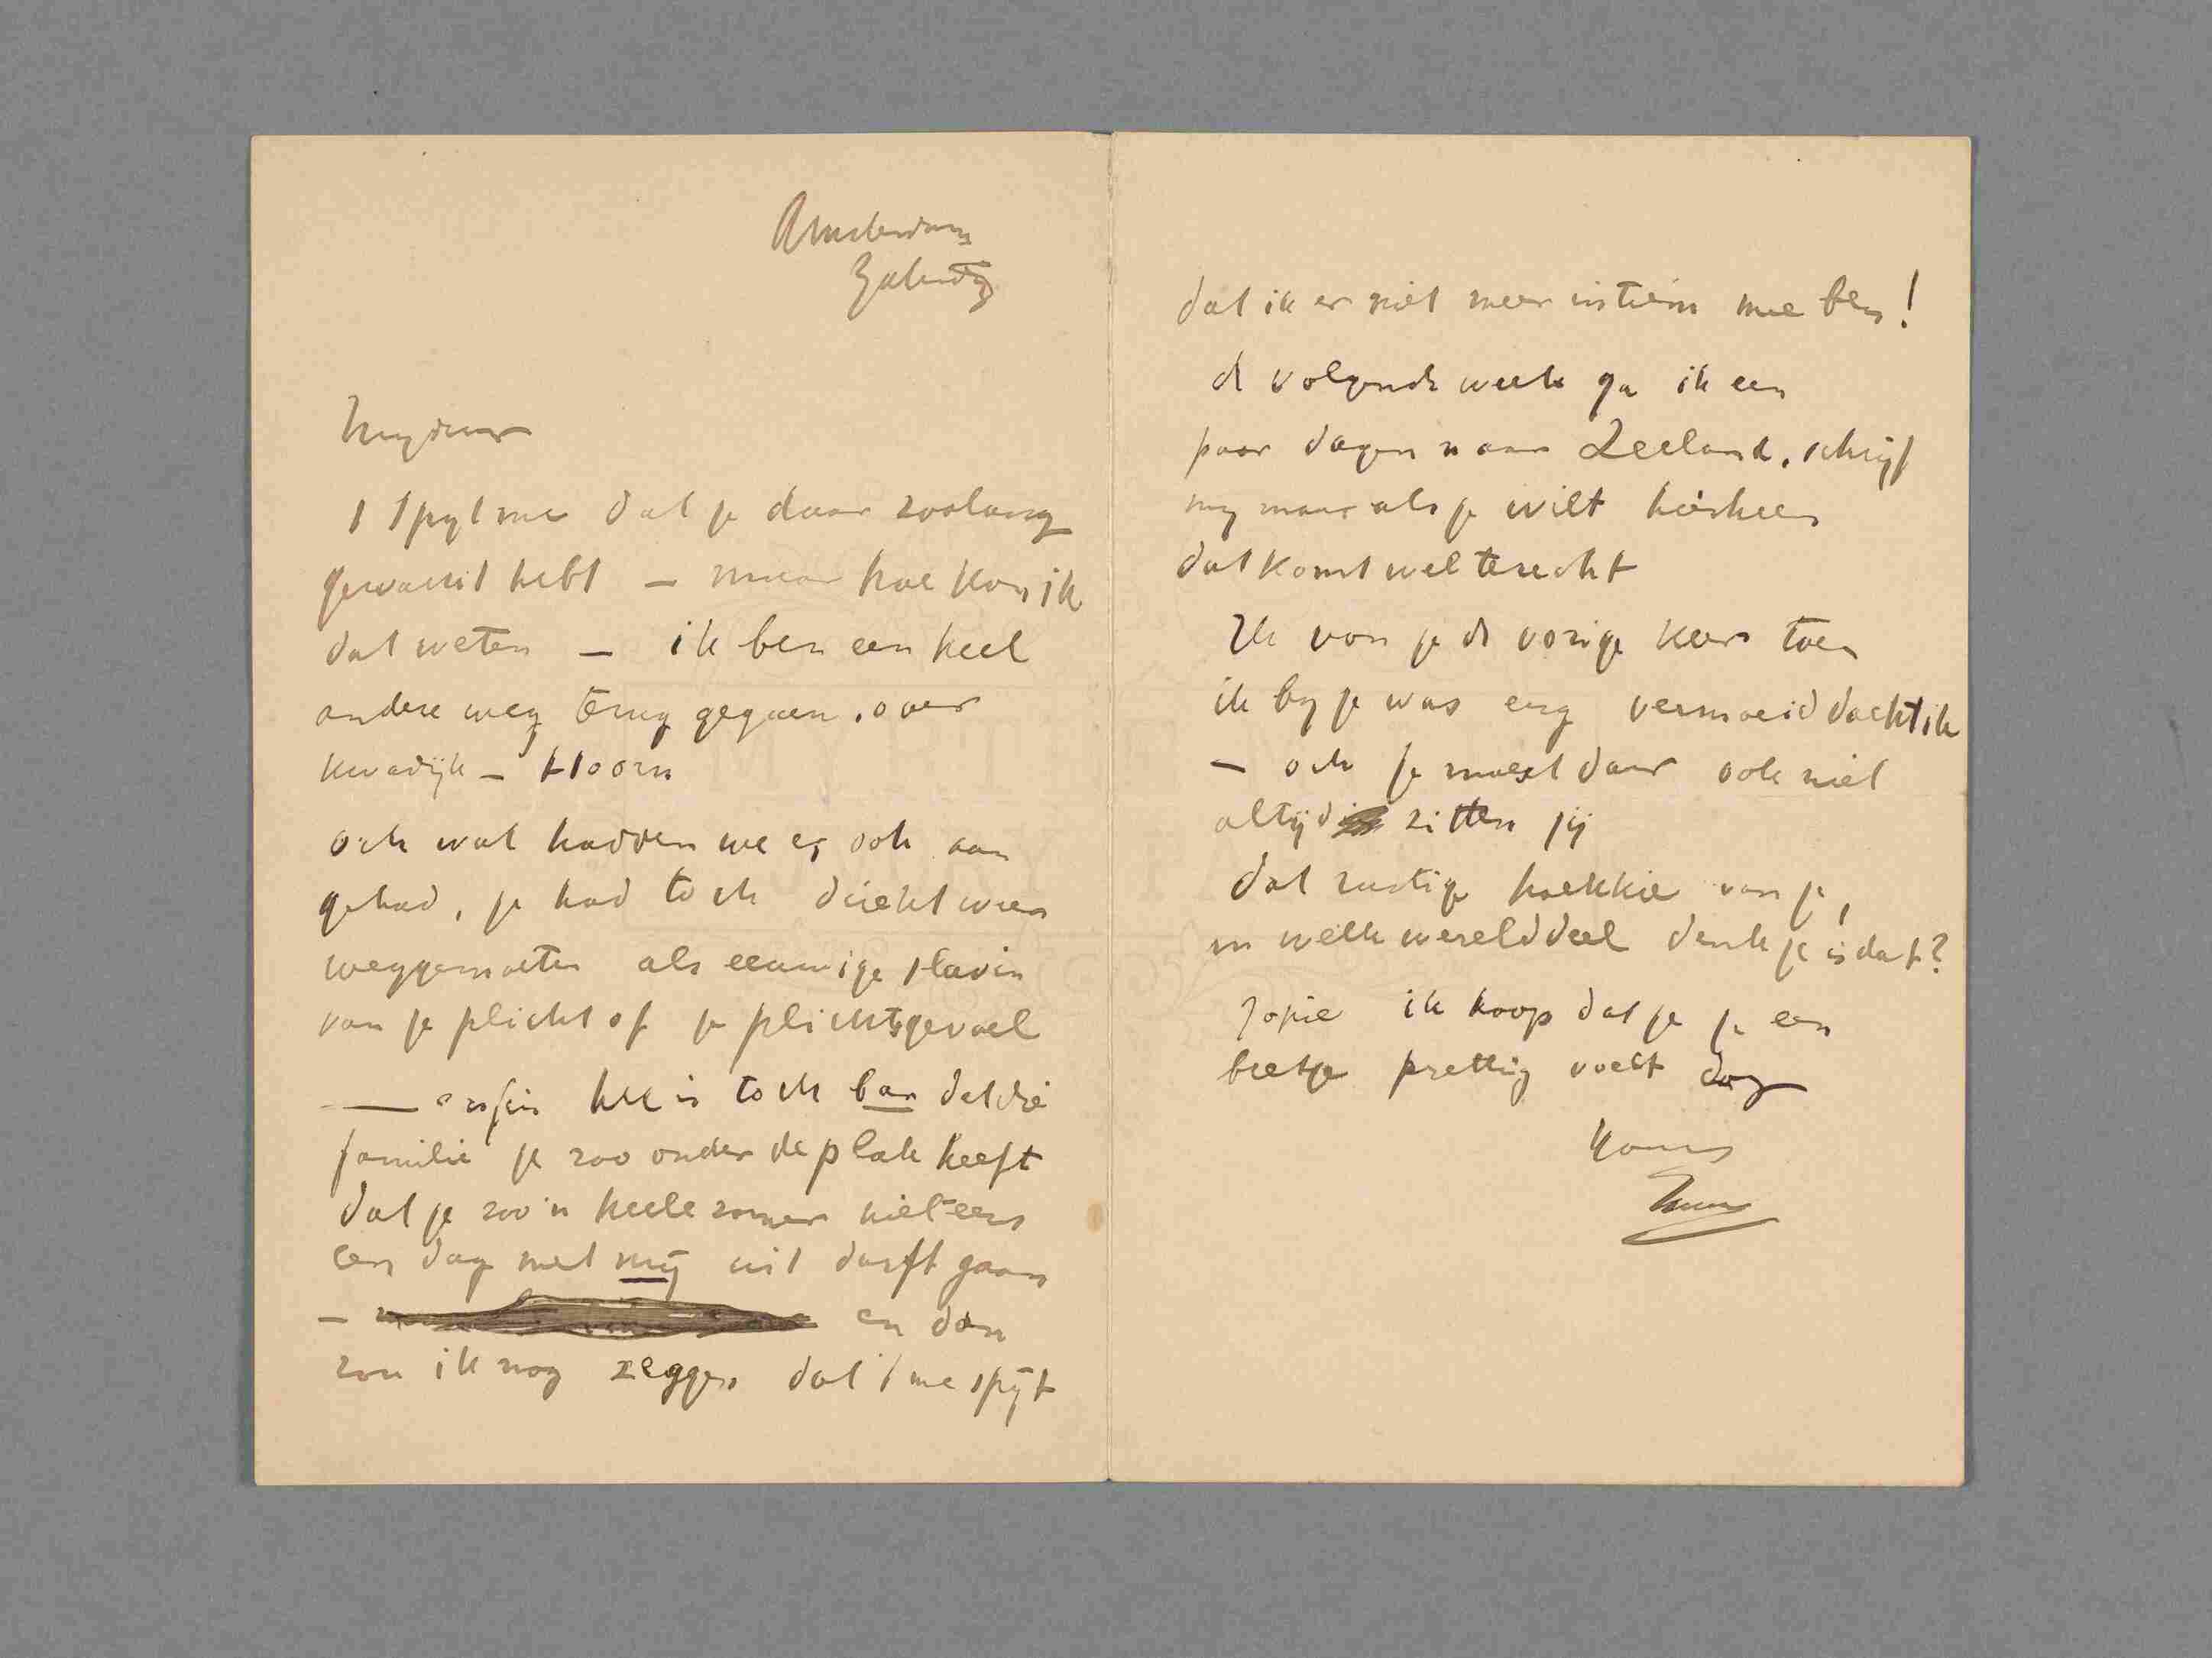 Amsterdam
Zaterdg
My dear
't Spyt me dat je daar zoolang
gewacht hebt — maar hoe kon ik
dat weten — ik ben een heel
andere weg terug gegaan. over
Kwadijk — Hoorn
och wat hadden we er ook aan
gehad, je had toch direkt weer
weggemoeten als eeuwige slavin
van je plicht of je plichtsgevoel
— enfin het is toch bar dat die
familie je zoo onder de plak heeft
dat je zoo'n heele zomer niet eens
een dag met mij uit durft gaan
— en dan
zou ik nog zeggen dat 't me spijt
dat ik er niet meer intiem mee ben!
de volgende week ga ik een
paar dagen naar Zeeland. schrijf
my maar als je wilt hierheen
dat komt wel terecht
Ik von je de vorige keer toen
ik by je was erg vermoeid dacht ik
— och je moest daar ook niet
altijd zitten jij
dat rustige hoekkie van je,
in welk werelddeel denk je is dat?
Jopie ik hoop dat je je een
beetje prettig voelt dag
Yours